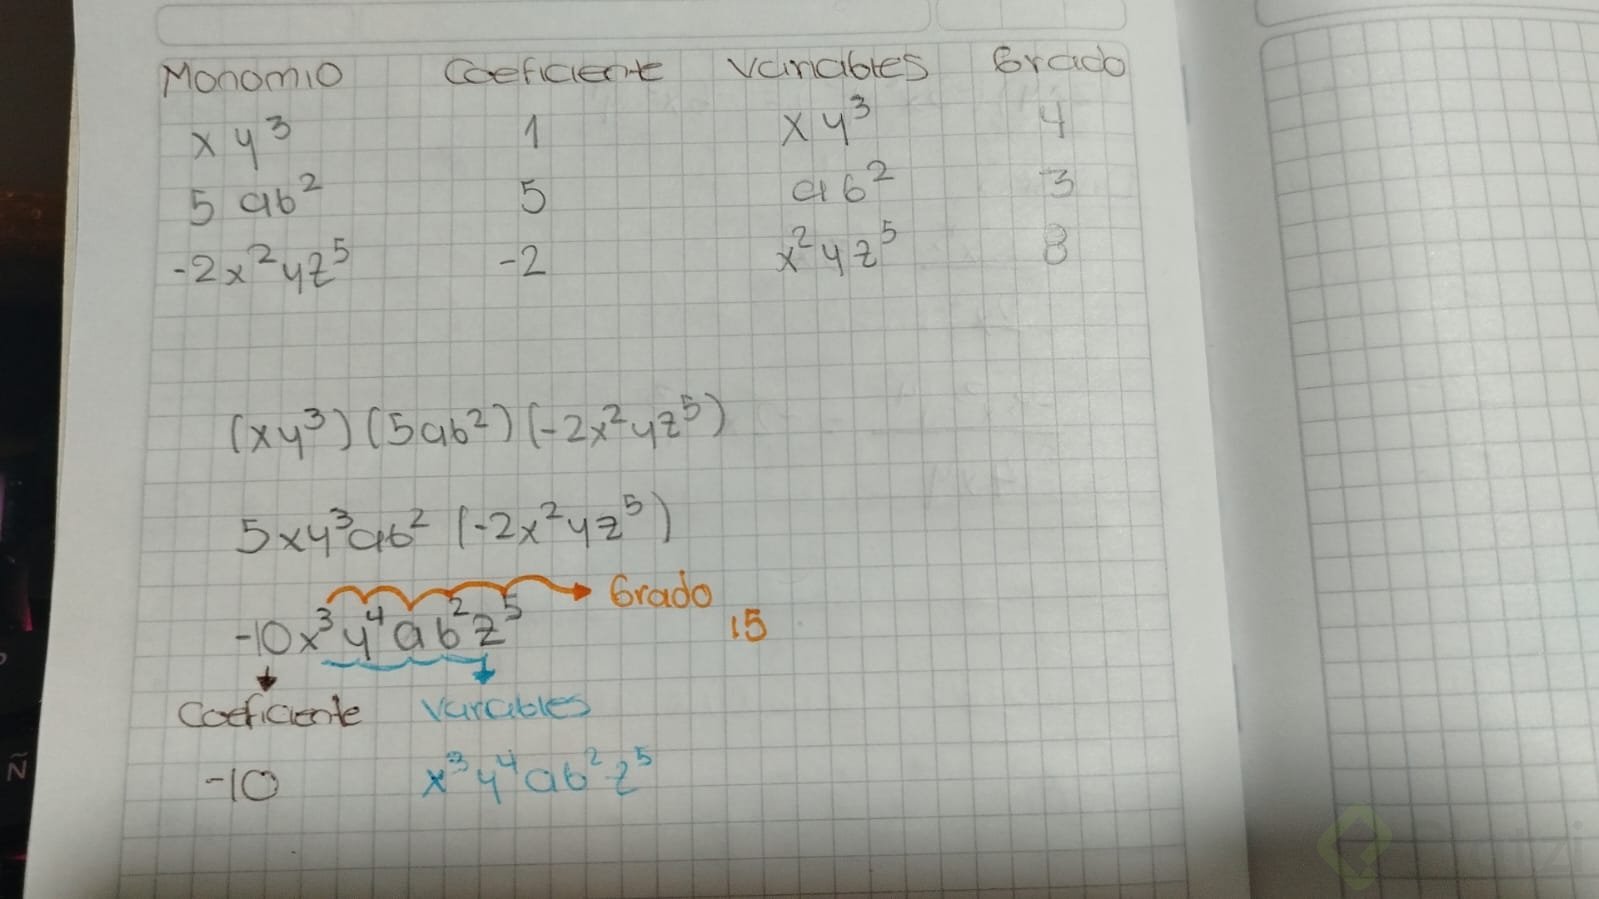 Monomio Coeficiente Variables Grado
xy³ 1 xy³ 4
5 ab² 5 ab² 3
-2x²yz⁵ -2 x²yz⁵ 8
(xy³)(5ab²)(-2x²yz⁵)
5xy³ab² (-2x²yz⁵)
-10x³y⁴ab²z⁵ Grado
15
Coeficiente Variables
-10 x³y⁴ab²z⁵
Ñ
Platzi